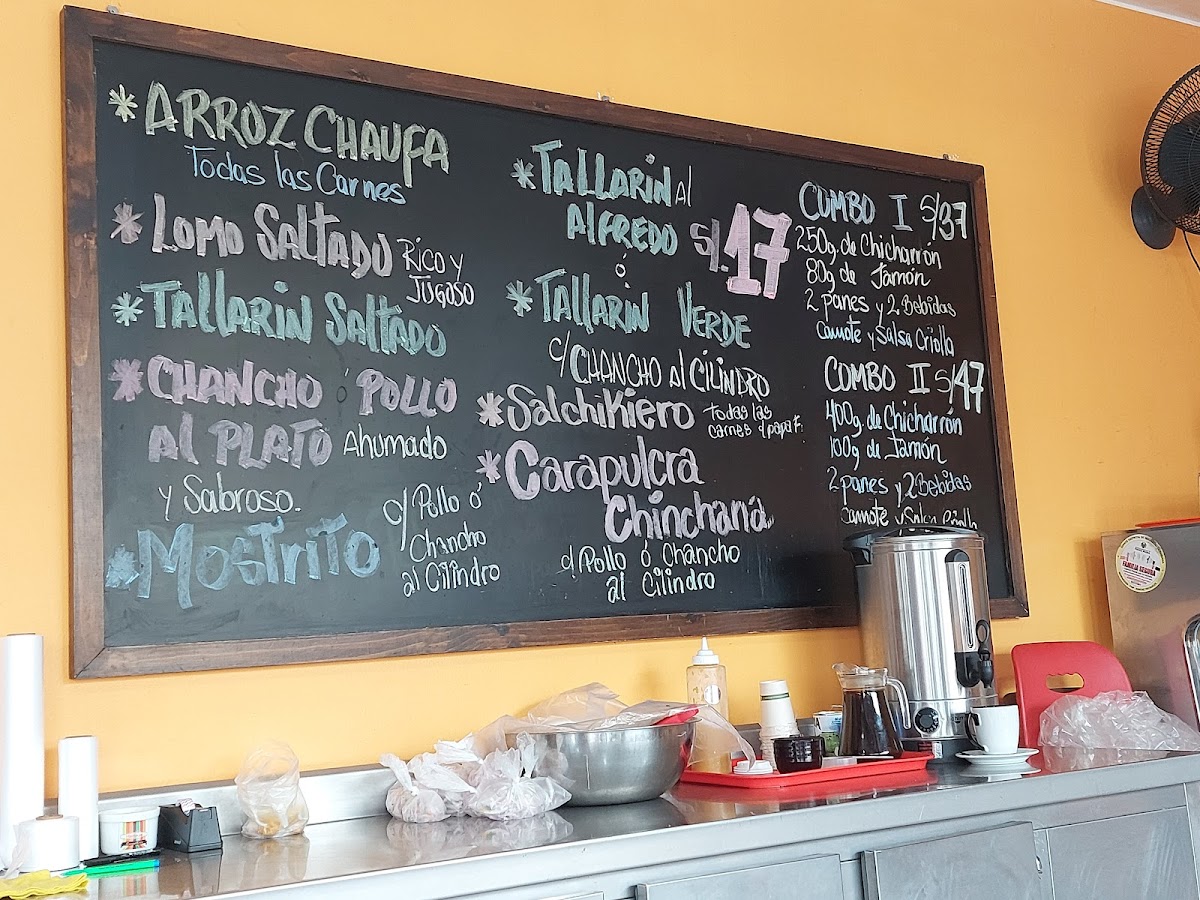 *ARROZ CHAUFA
Todas las Carnes
*LOMO SALTADO RICO Y
JUGOSO
*TALLARIN SALTADO
*CHANCHO Ó POLLO
AL PLATO AHUMADO
Y SABROSO.
*MOSTRITO c/ Pollo ó
Chancho
al Cilindro
*TALLARIN al
ALFREDO S/. 17
ó
*TALLARIN VERDE
c/ CHANCHO al CILINDRO
*SALCHIKIERO todas las
carnes c/ papa F.
*Carapulcra
Chinchana
c/ Pollo ó Chancho
al Cilindro
COMBO I S/37
250g. de Chicharrón
80g de Jamón
2 panes y 2 Bebidas
Camote y Salsa Criolla
COMBO II S/47
400g. de Chicharrón
100g de Jamón
2 panes y 2 Bebidas
Camote y Salsa Criolla
FAMILIA SEGURA